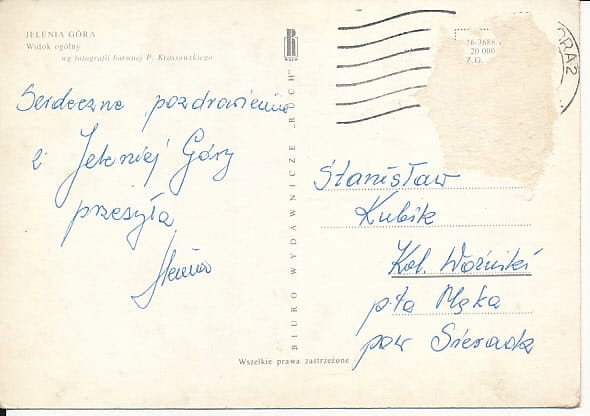 JELENIA GÓRA
Widok ogólny
wg fotografii barwnej P. Krassowskiego
Serdeczne pozdrowienia
z Jeleniej Góry
przesyła
BIURO WYDAWNICZE „RUCH"
RUCH
26-3688/
20 000
Z.G.
Stanisław
Kubik
Kol. Woźniki
p-ta Męka
pow Sieradz
Wszelkie prawa zastrzeżone